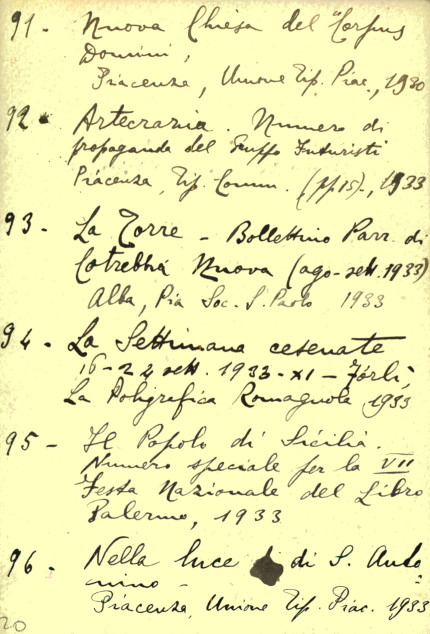 91 - Nuova Chiesa del "Corpus
Domini,
Piacenza, Unione Tip. Piac., 1930
92 - Artecrazia. Numero di
propaganda del Gruppo Futuristi
Piacenza, Tip. Comm. (pp. 15)., 1933
93 - La Torre - Bollettino Parr. di
Cotrebbia Nuova (ago-sett. 1933)
Alba, Pia Soc. S. Paolo 1933
94 - La Settimana cesenate
16-24 sett. 1933-XI - Forlì,
La Poligrafica Romagnola 1933
95 - Il Popolo di Sicilia.
Numero speciale per la VII
Festa Nazionale del Libro
Palermo, 1933
96 - Nella luce di S. Anto
nino -
Piacenza, Unione Tip. Piac. 1933
20